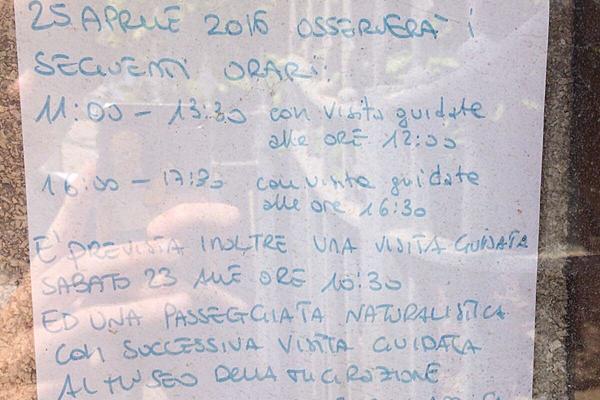 25 APRILE 2016 OSSERVERA' i
SEGUENTI ORARI:
11:00 - 13:30 con visita guidata
alle ORE 12:00
16:00 - 17:30 con visita guidata
alle ore 16:30
E' PREVISTA INOLTRE UNA VISITA GUIDATA
SABATO 23 ALLE ORE 10:30
ED UNA PASSEGGIATA NATURALISTICA
CON SUCCESSIVA VISITA GUIDATA
AL MUSEO DELLA